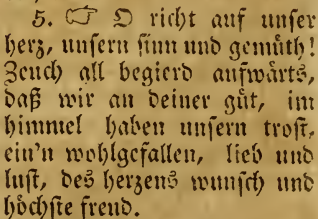 5. ☞ O richt auf unſer
herz, unſern ſinn und gemüth!
Zeuch all begierd aufwärts,
daß wir an deiner güt, im
himmel haben unſern troſt,
ein'n wohlgefallen, lieb und
luſt, des herzens wunſch und
höchſte freud.